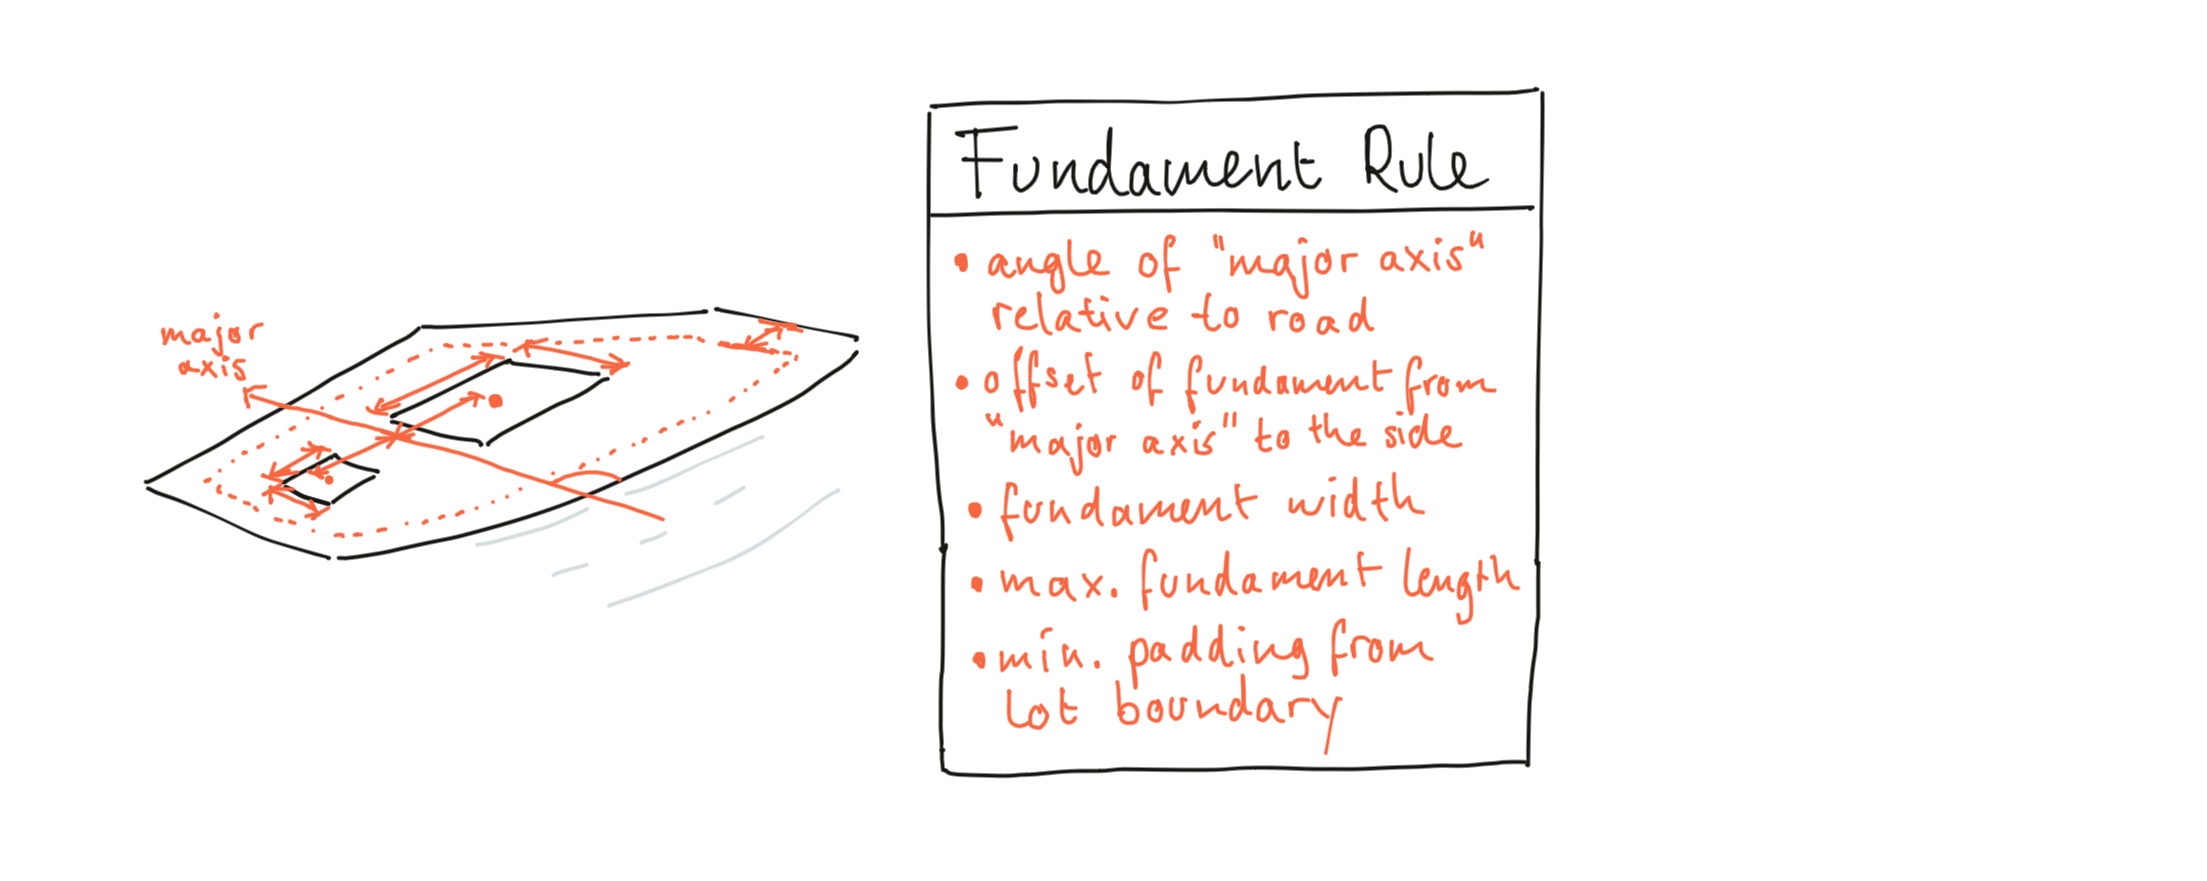 major
axis
Fundament Rule
• angle of "major axis"
relative to road
• offset of fundament from
"major axis" to the side
• fundament width
• max. fundament length
• min. padding from
lot boundary